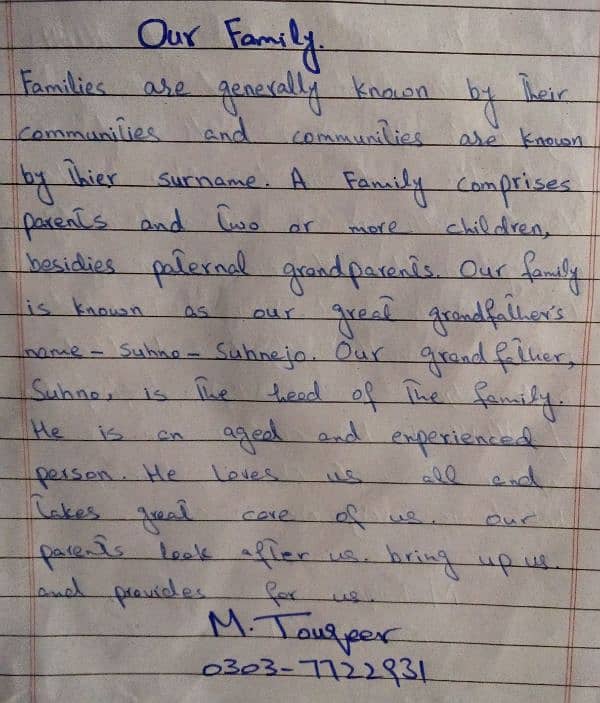 Our Family.
Families are generally known by their
communities and communities are known
by thier surname. A Family comprises
parents and two or more children,
besidies paternal grandparents. Our family
is known as our great grandfather's
name - Suhno - Suhnejo. Our grandfather,
Suhno, is the head of the family.
He is an aged and experienced
person. He loves us all and
takes great care of us. our
parents look after us. bring up us.
and provides for us.
M. Touqeer
0303-7722931